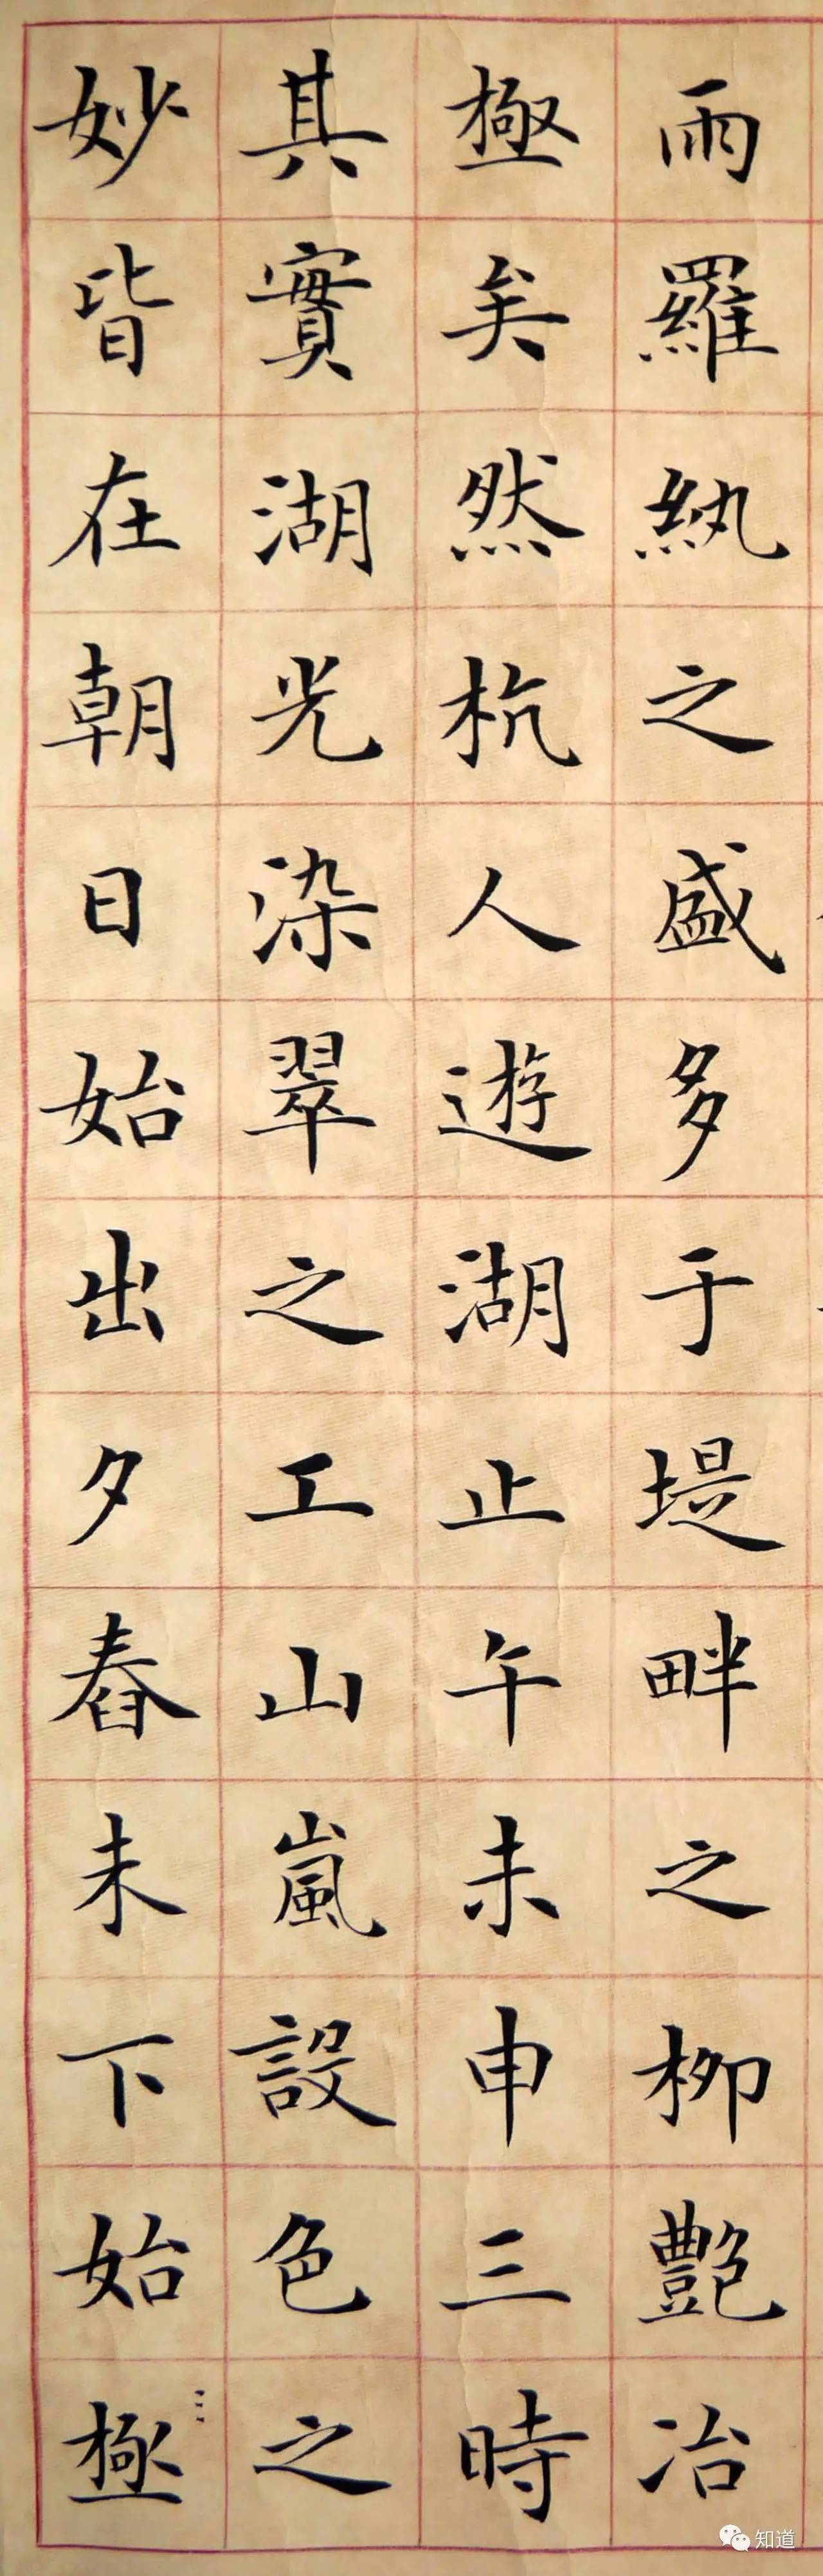 雨羅紈之盛多于堤畔之柳艷冶
極矣然杭人遊湖止午未申三時
其實湖光染翠之工山嵐設色之
妙皆在朝日始出夕舂未下始極
知道